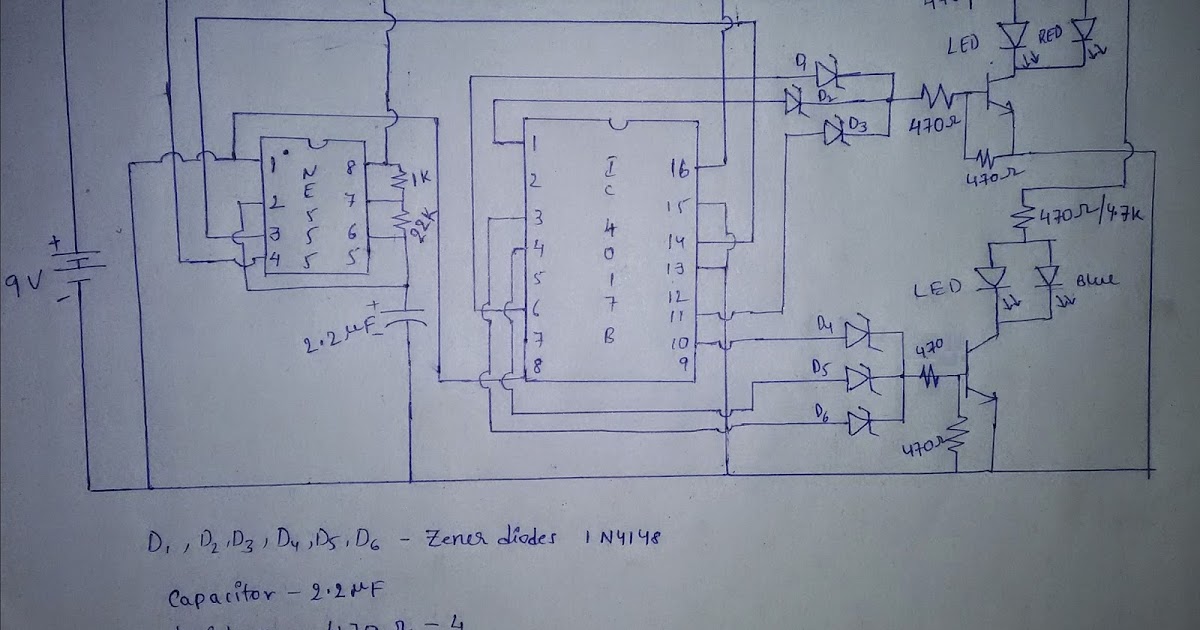 LED RED
D1
D2
D3
470Ω
470Ω
1 8
2 7
3 6
4 5
NE555
1K
22K
1 16
2 15
3 14
4 13
5 12
6 11
7 10
8 9
IC4017B
470Ω/47K
LED BLUE
+
9V
-
+
2.2μF
-
D4
D5
D6
470
470Ω
D1, D2, D3, D4, D5, D6 - Zener diodes 1N4148
Capacitor - 2.2μF